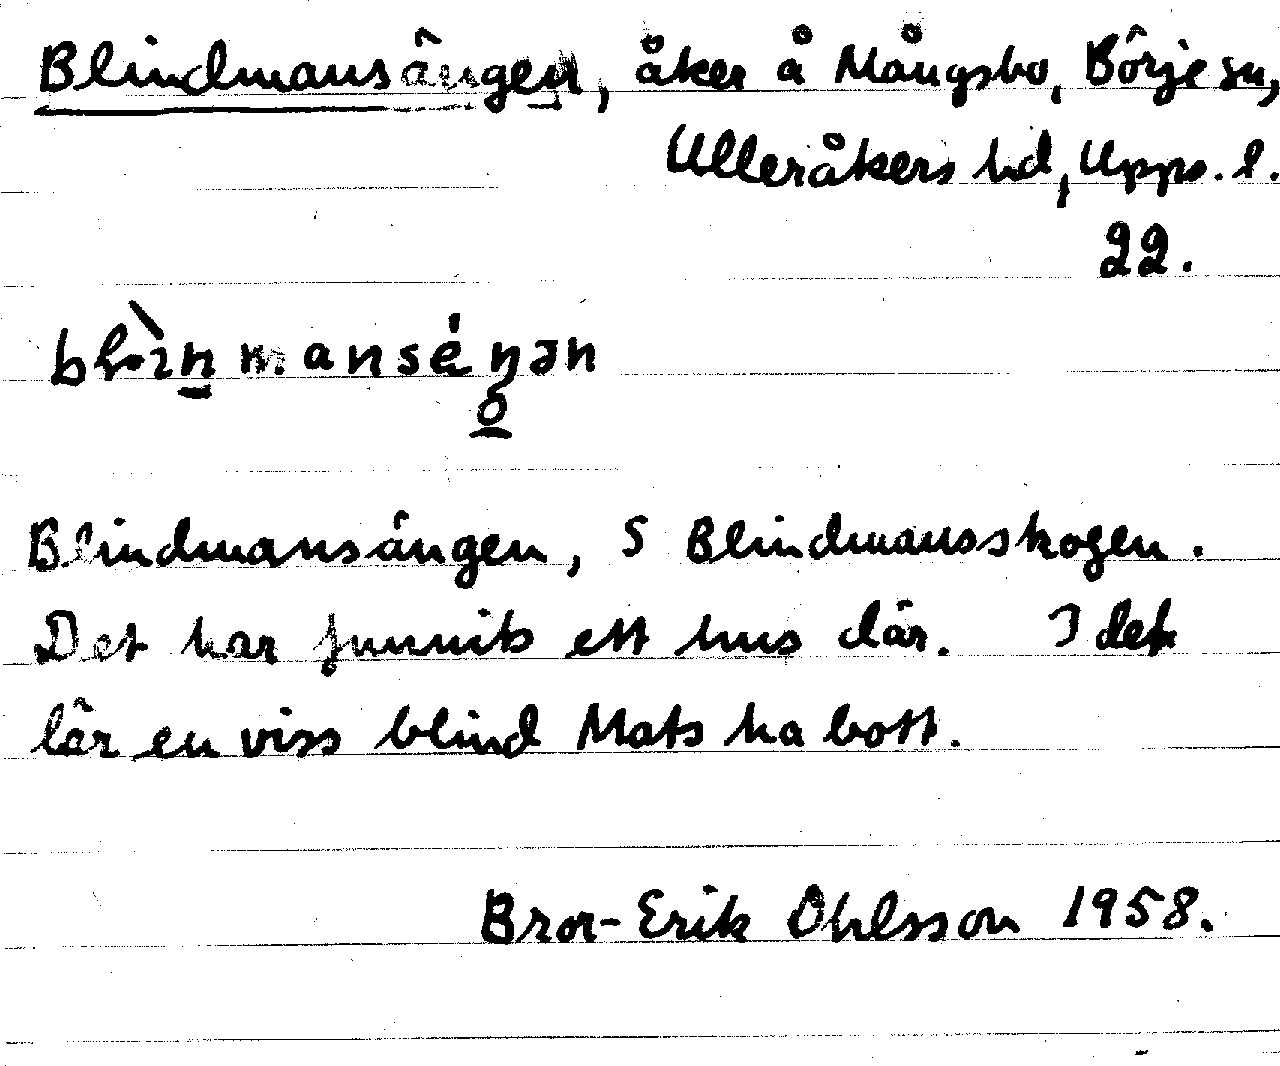 Blindmansängen, åker å Mångsbo, Börje sn,
Ulleråkers hd, Upps. l.
22.
Blindmansängen, S Blindmansskogen.
Det har funnits ett hus där. I det
lär en viss blind Mats ha bott.
Bror-Erik Ohlsson 1958.